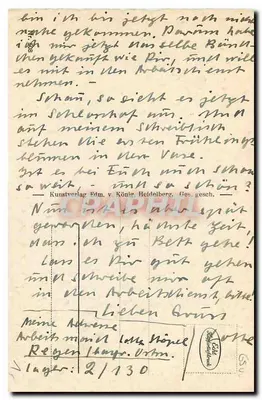 bin ich bis jetzt noch nicht
gekommen. Darum habe
ich mir jetzt dasselbe Bänd-
chen gekauft wie Dir, und will
es mit in den Arbeitsdienst
nehmen. -
Schau, so sieht es jetzt
im Schlosshof aus. Und
auf meinem Schreibtisch
stehen die ersten Frühlings
blumen in der Vase.
Ist es bei Euch auch schon
so weit, und so schön?
Kunstverlag Edm. v. König, Heidelberg. Ges. gesch.
Nun ist es aber spät
geworden, höchste Zeit,
dass ich zu Bett gehe!
Lass es Dir gut gehen
und schreibe mir oft
in den Arbeitsdienst, bitte!
Lieben Gruss
Lotte
Meine Adresse
Arbeitsmaid Lotte
Regen / bayr. Ostm.
Lager: 2/130
Echt